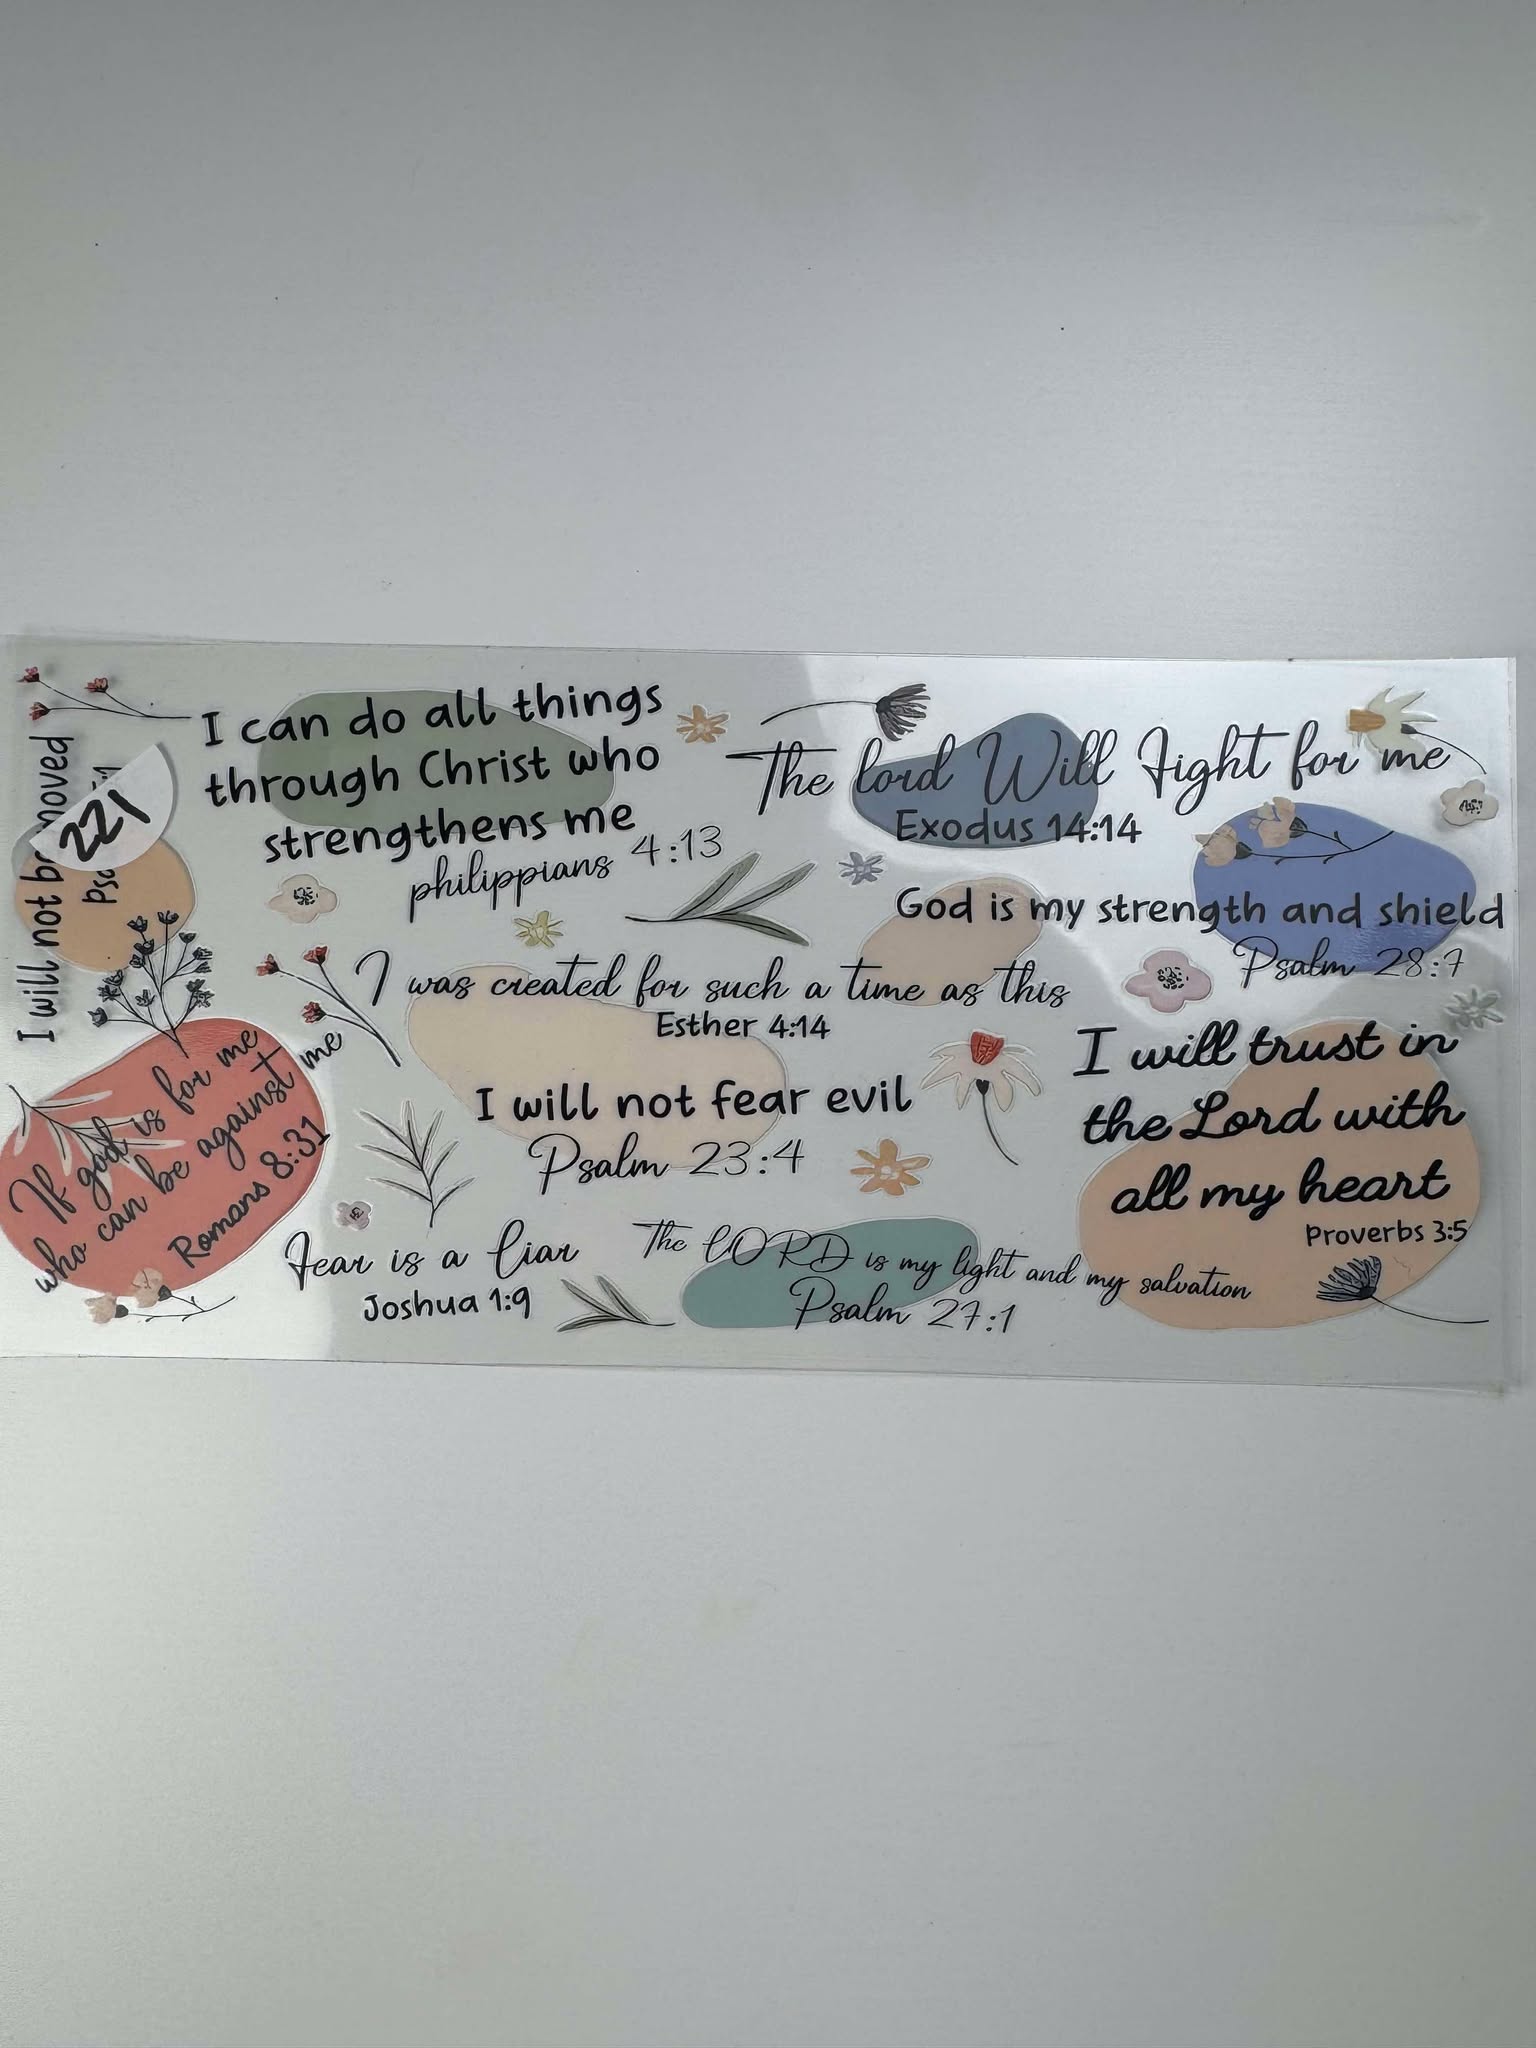 I can do all things
through Christ who
strengthens me
philippians 4:13
The lord Will Fight for me
Exodus 14:14
God is my strength and shield
Psalm 28:7
I will not be moved
221
I was created for such a time as this
Esther 4:14
I will trust in
the Lord with
all my heart
Proverbs 3:5
I will not fear evil
Psalm 23:4
If god is for me
who can be against me
Romans 8:31
Fear is a liar
Joshua 1:9
The LORD is my light and my salvation
Psalm 27:1